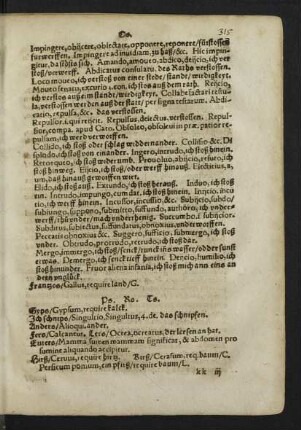 Os. 315
Impingere, obijcere, obiectare, opponere, reponere/fürstossen
fürwerffen. Impingere ad inuidiam, zu haß/&c. Hic impin-
gitur, da stosts sich. Amando, amouto, abdico, deijcio, ich ver
stoß/verwerff. Abdicatus consulatu, des Raths verstossen.
Loco moueo, ich verstoß von eim orde/stande/wirdigkeyt.
Moueo senatu, ich stoß auß dem rath. Reijcio,
ich verstoß
la, verstossen werden auß der statt/per signa testarum. Abdi-
catio, repulsa, &c. das verstossen.
Repulsus, deiectus, verstossen. Repul-
sor, compa. apud Cato. Obsoleo, obsoleui in præ. patior re-
pulsam, ich werd verworffen.
Collido, ich stoß oder schlag widdernander. Collisio &c. Di
splodo, ich stoß von einander. Ingero, intrudo, ich stoß hinein.
Retorqueo, ich stoß widerumb. Prouoluo, abijcio, reiecto, ich
stoß hinweg. Eijcio, ich stoß/oder werff hinauß. Electitius, a,
um, das hinauß geworffen wirt.
Elido, ich stoß auß. Extundo, ich stoß herauß. Induo, ich stoß
ein. Intrudo, impingo, cum dat. ich stoß hinein. Incutio, inijcio,
infero, ich werff hinein. Incussor, incussio, &c. Subijcio, subdo/
subiungo, suppono, submitto, suffundo, authores, ich under-
werff/hůn under/mach underthenig. Succumbo. i. subijcior.
Subditus, subiectus, suffundatus, submissus, underworffen.
Peccatis obnoxius &c. Suggero, sufficio, submergo, ich under
stoß. Obtrudo, protrudo, retrudo, ich stoß dar.
Mergo, immergo, ich stoß/senck/tunck ins wasser/odder sunst
etwas. Demergo, ich senck tieff hinein. Deijcio, humilio, ich
stoß hinunder. Fruor aliena insania, ich stoß mich ann eins an
dern unglück.
Frantzos/Gallus, require land/C.
Ps. Rs. Ts.
Gyps/Gypsum, require kalck.
Ich schnips/Singultio, Singultus, 4. de. das schnipsen.
Anders/Alioqui, ander,
Fers/Calcantur,
Euters/Mamma suum mammam significat, & abdomen pro
sumine aliquando accipitur.
Hirß/Ceruus, require hirtz. Kirß/Cerasum, req. baum/C.
Persicum pomum, ein pfirß/require baum/C.
kk iij